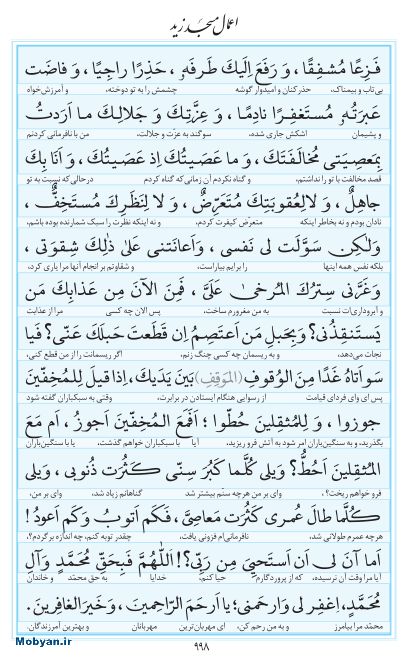 اعمال مسجد زید
فَزِعًا مُشْفِقًا، وَ رَفَعَ اِلَيْكَ طَرْفَهُ، حَذِرًا رَاجِيًا، وَ فَاضَتْ
بی‌تاب و بیمناک، حذرکنان و امیدوار گوشه چشمش را به تو دوخته، و آمرزش‌خواه
عَبْرَتُهُ مُسْتَغْفِرًا نَادِمًا، وَ عِزَّتِكَ وَ جَلَالِكَ مَا اَرَدْتُ
و پشیمان اشکش جاری شده، سوگند به عزّت و جلالت، من با نافرمانی کردنم
بِمَعْصِيَتِي مُخَالَفَتَكَ، وَ مَا عَصَيْتُكَ اِذْ عَصَيْتُكَ، وَ اَنَا بِكَ
قصد مخالفت با تو را نداشتم، و گناه نکردم آن زمانی که گناه کردم درحالی‌که نسبت به تو
جَاهِلٌ، وَ لَالِعُقُوبَتِكَ مُتَعَرِّضٌ، وَ لَا لِنَظَرِكَ مُسْتَخِفٌّ،
نادان بودم و نه بخاطر اینکه متعرّض کیفرت گردم، و نه اینکه نظرت را سبک شمارنده بوده باشم،
وَلٰكِنْ سَوَّلَتْ لِي نَفْسِي، وَاَعَانَتْنِي عَلىٰ ذٰلِكَ شِقْوَتِي،
بلکه نفس همه اینها را برایم بیاراست، و شقاوتم بر انجام آنها مرا یاری کرد،
وَ غَرَّنِي سِتْرُكَ الْمُرْخىٰ عَلَيَّ، فَمِنَ الْآنَ مِنْ عَذَابِكَ مَنْ
و آبروداری‌ات نسبت به من مغرورم ساخت، پس الان چه کسی مرا از عذابت
يَسْتَنْقِذُنِي؟ وَبِحَبْلِ مَنْ اَعْتَصِمُ اِنْ قَطَعْتَ حَبْلَكَ عَنِّي؟ فَيَا
نجات می‌دهد، و به ریسمان چه کسی چنگ زنم، اگر ریسمانت را از من قطع کنی،
سَوْاَتَاهُ غَدًا مِنَ الْوُقُوفِ (الْمَوْقِفِ) بَيْنَ يَدَيْكَ، اِذَا قِيلَ لِلْمُخِفِّينَ
پس ای وای فردای قیامت از رسوایی هنگام ایستادن در برابرت، وقتی به سبکباران گفته شود
جُوزُوا، وَ لِلْمُثْقِلِينَ حُطُّوا؛ اَفَمَعَ الْمُخِفِّينَ اَجُوزُ، اَمْ مَعَ
بگذرید، و به سنگین‌باران امر شود به آتش فرو ریزید، آیا با سبکباران خواهم گذشت، یا با سنگین‌باران
الْمُثْقِلِينَ اَحُطُّ؟ وَيْلِي كُلَّمَا كَبُرَ سِنِّي كَثُرَتْ ذُنُوبِي، وَيْلِي
فرو خواهم ریخت؟، وای بر من هرچه سنم بیشتر شد گناهانم زیاد شد، وای بر من،
كُلَّمَا طَالَ عُمْرِي كَثُرَتْ مَعَاصِيَّ، فَكَمْ اَتُوبُ وَكَمْ اَعُودُ!
هرچه عمرم طولانی شد، نافرمانی‌ام فزونی یافت، چقدر توبه کنم، چه اندازه برگردم؟،
اَمَا آنَ لِي اَنْ اَسْتَحْيِيَ مِنْ رَبِّي؟! اَللّٰهُمَّ فَبِحَقِّ مُحَمَّدٍ وَآلِ
آیا مرا وقت آن نرسیده، که از پروردگارم حیا کنم، خدایا به حق محمّد و خاندان
مُحَمَّدٍ، اِغْفِرْ لِي وَارْحَمْنِي؛ يَا اَرْحَمَ الرَّاحِمِينَ، وَ خَيْرَ الْغَافِرِينَ.
محمّد مرا بیامرز و به من رحم کن، ای مهربان‌ترین مهربانان و بهترین آمرزندگان.
Mobyan.ir
۹۹۸